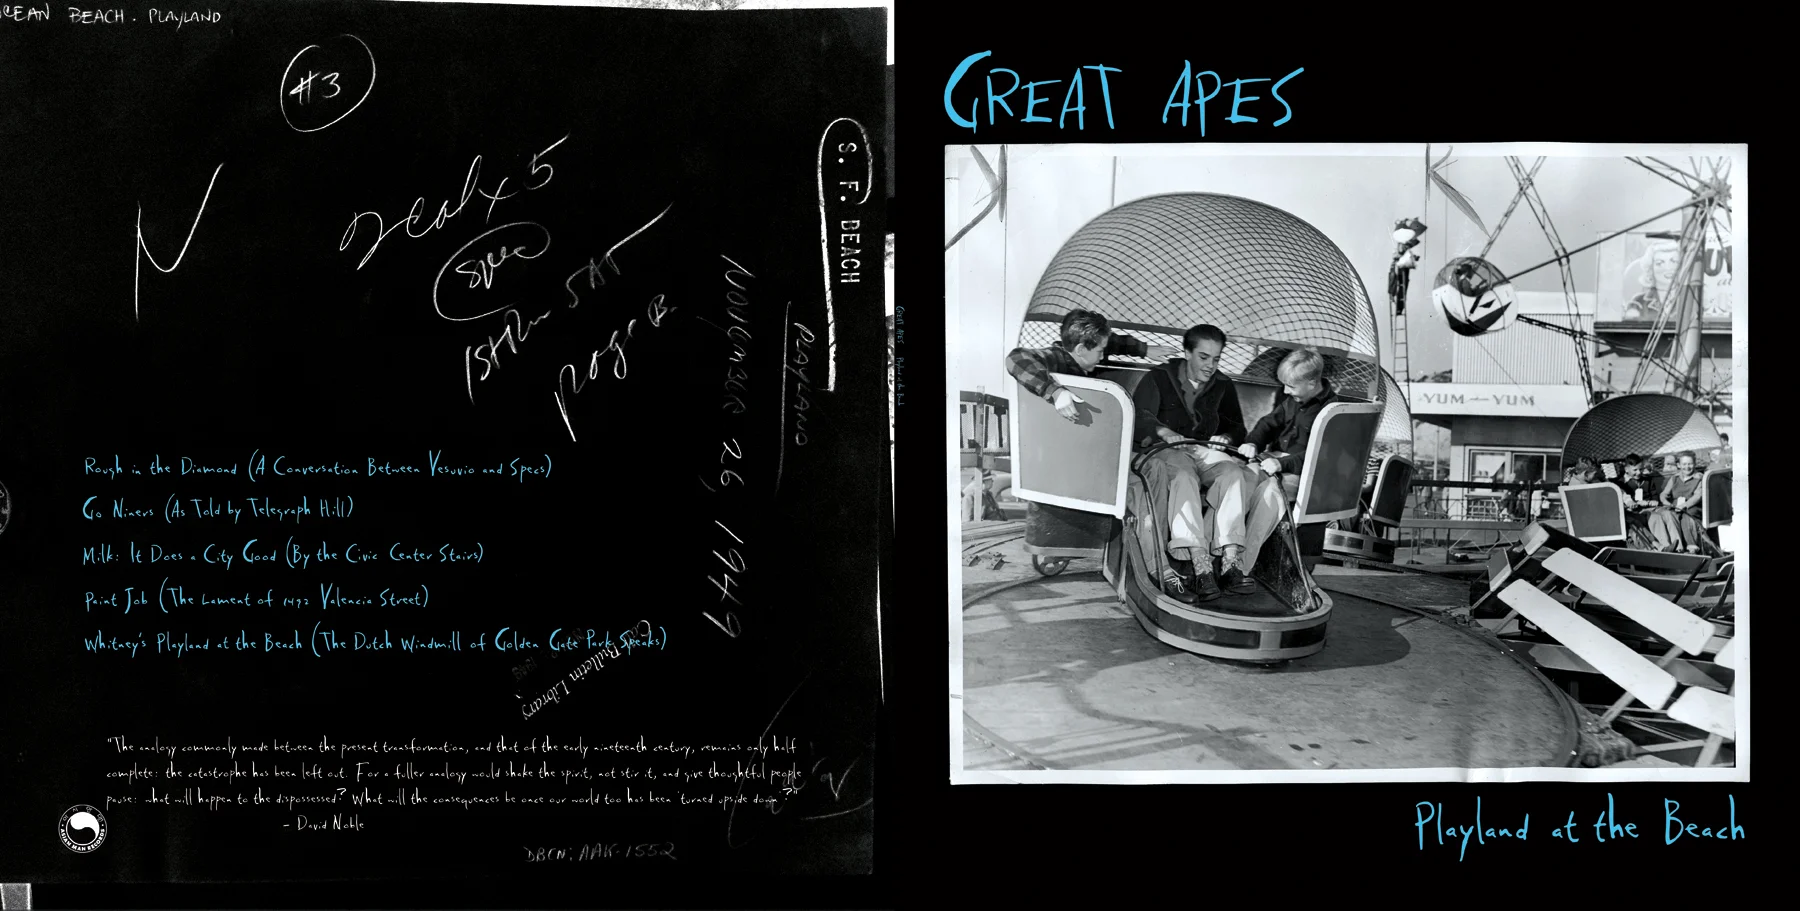 OCEAN BEACH. PLAYLAND
#3
S. F. BEACH
PLAYLAND
NOVEMBER 26, 1949
Rough in the Diamond (A Conversation Between Vesuvio and Specs)
Go Niners (As Told by Telegraph Hill)
Milk: It Does a City Good (By the Civic Center Stairs)
Paint Job (The Lament of 1492 Valencia Street)
Whitney's Playland at the Beach (The Dutch Windmill of Golden Gate Park Speaks)
Bulletin Library
"The analogy commonly made between the present transformation, and that of the early nineteenth century, remains only half
complete: the catastrophe has been left out. For a fuller analogy would shake the spirit, not stir it, and give thoughtful people
pause: what will happen to the dispossessed? What will the consequences be once our world too has been 'turned upside down'?"
- David Noble
ASIAN MAN RECORDS
DBCN: AAK-1552
GREAT APES Playland at the Beach
GREAT APES
YUM YUM
Playland at the Beach